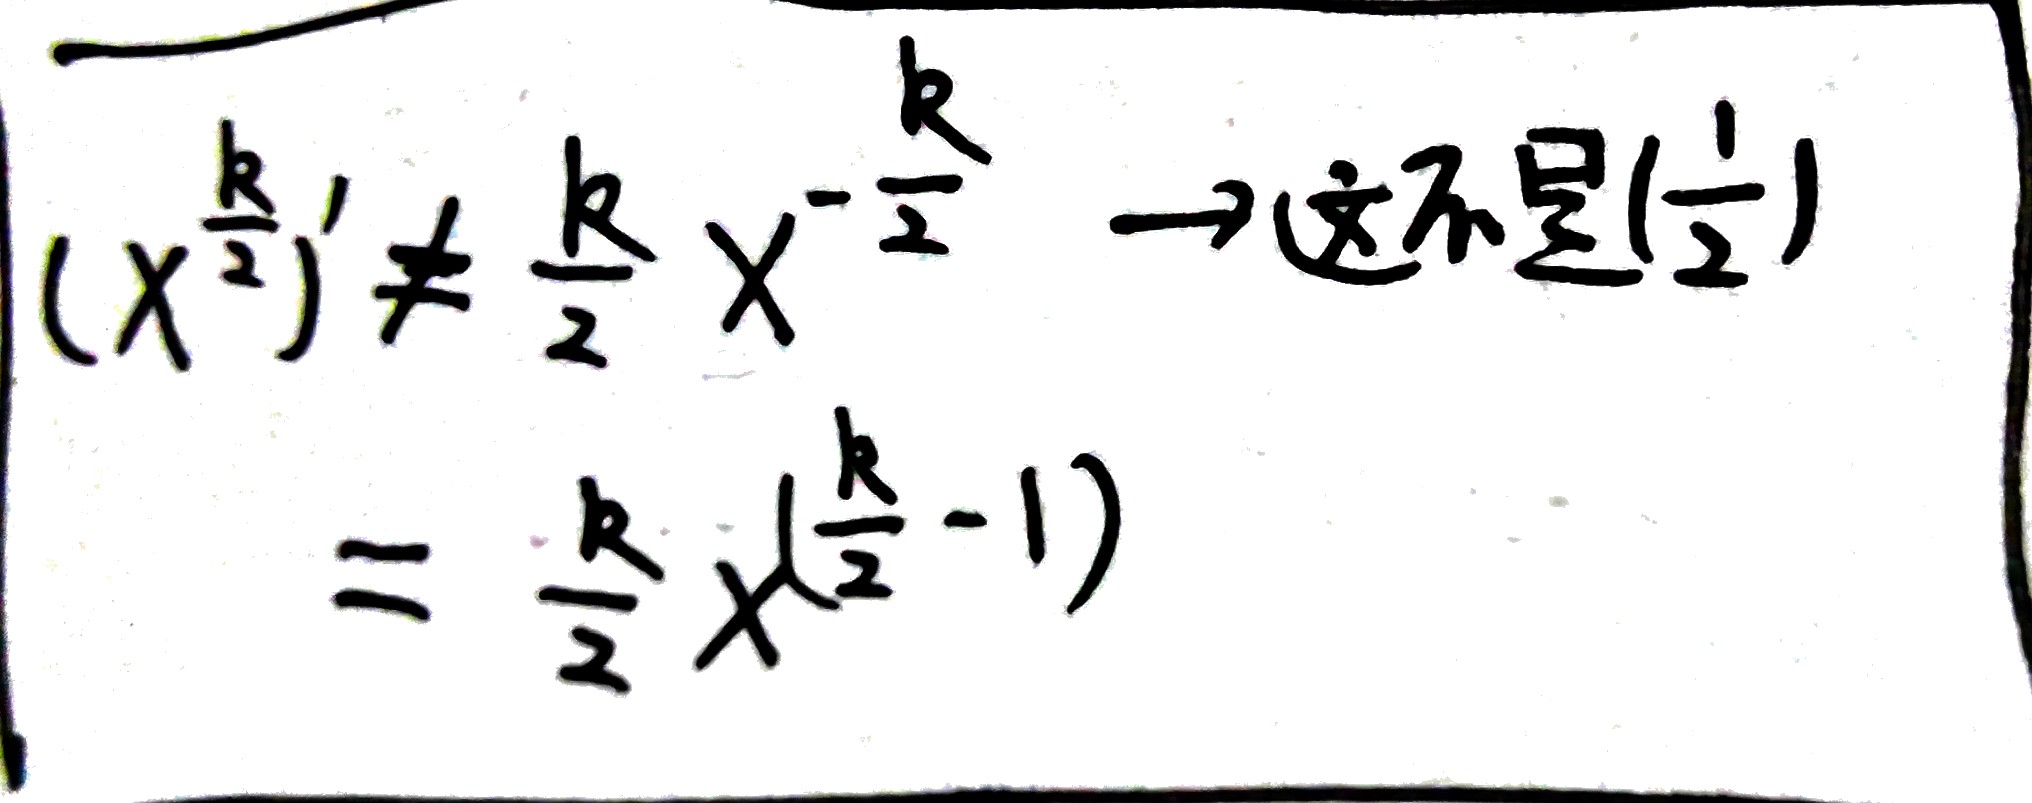 (x^{\frac{k}{2}})' ≠ \frac{k}{2} x^{-\frac{k}{2}} → 这不是(\frac{1}{2})
= \frac{k}{2} x^{(\frac{k}{2}-1)}